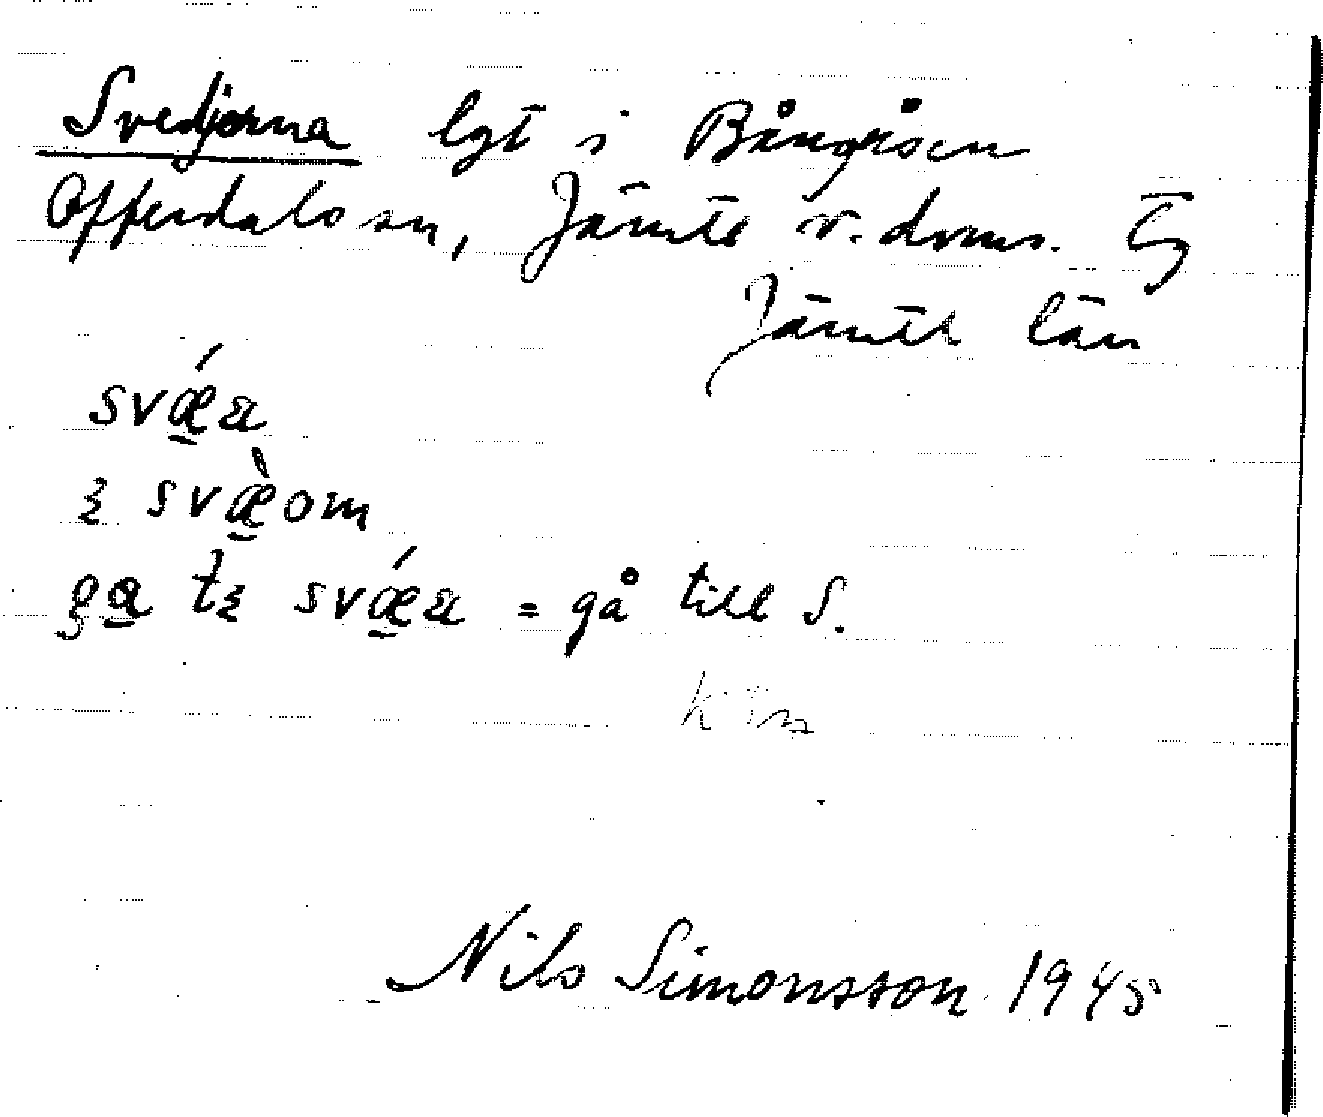 Svedjorna lgt i Bångåsen
Offerdals sn, Jämtl v. doms. tg
Jämtl län
svǽa
svæ̀om
ga t svǽa = gå till S.
Nils Simonsson 1945